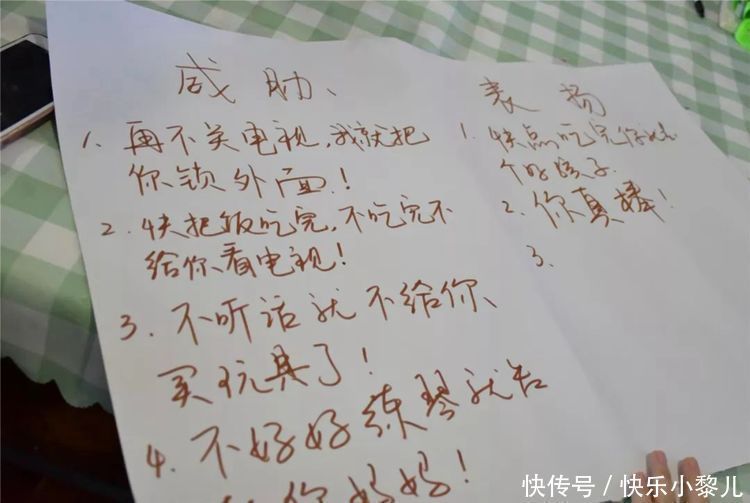 威胁、
1、再不关电视，我就把
你锁外面！
2、快把饭吃完，不吃完不
给你看电视！
3、不听话就不给你、
买玩具了！
4、不好好练琴就告
你妈妈！
表扬
1、快点吃完你就是
个好孩子.
2、你真棒！
3、
快传号／快乐小黎儿